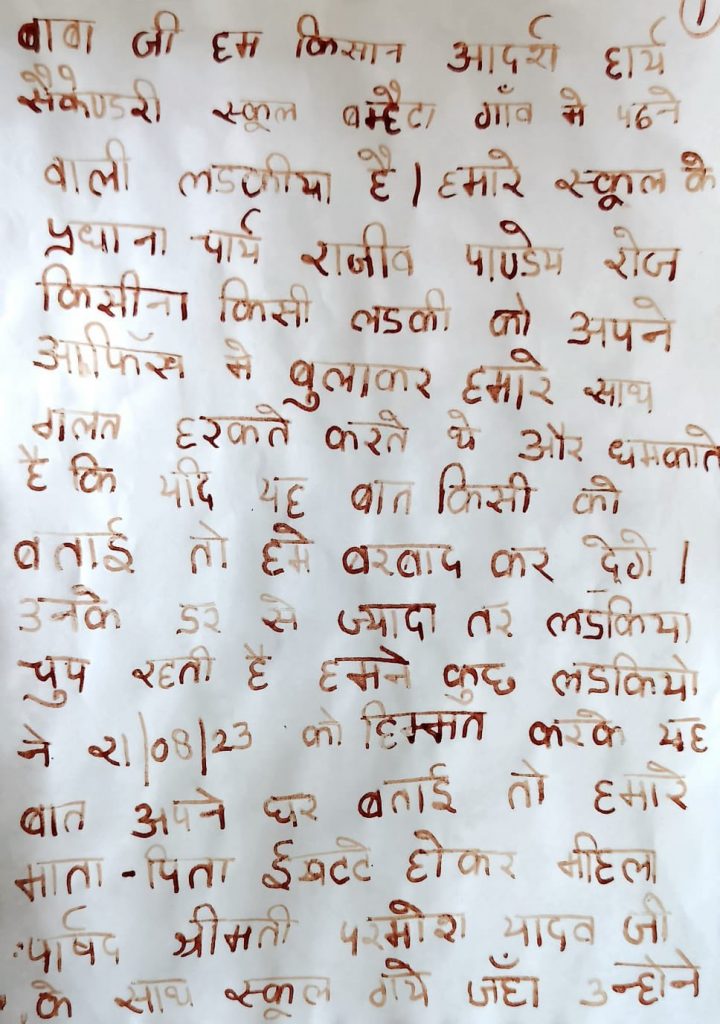 1
बाबा जी हम किसान आदर्श हार्य
सैकेण्डरी स्कूल बम्हैटा गाँव मे पढने
वाली लडकीया है। हमारे स्कूल के
प्रधाना चार्य राजीव पाण्डेय रोज
किसीना किसी लडकी को अपने
आफिॅस मे बुलाकर हमारे साथ
गलत हरकते करते थे और धमकाते
है कि यदि यह बात किसी को
बताई तो हमे बरबाद कर देगे।
उनके डर से ज्यादा तर लडकिया
चुप रहती है हमने कुछ लडकियो
ने 21/08/23 को हिम्मत करके यह
बात अपने घर बताई तो हमारे
माता-पिता ईखटटे होकर महिला
पार्षद श्रीमती परमोश यादव जी
के साथ स्कूल गये जँहा उन्होने